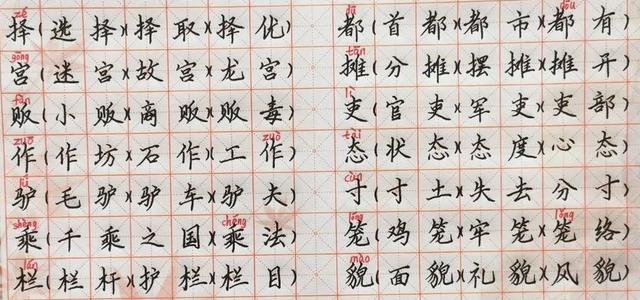 zé dū dōu
择(选择)(择取)(择优) 都(首都)(都市)(都有)
gōng tān
宫(迷宫)(故宫)(龙宫) 摊(分摊)(摆摊)(摊开)
fàn lì
贩(小贩)(商贩)(贩毒) 吏(官吏)(军吏)(吏部)
zuō zuò tài
作(作坊)(石作)(工作) 态(状态)(态度)(心态)
lǘ cùn
驴(毛驴)(驴车)(驴夫) 寸(寸土)(失去分寸)
shèng chéng lóng lǒng
乘(千乘之国)(乘法) 笼(鸡笼)(牢笼)(笼络)
lán mào
栏(栏杆)(护栏)(栏目) 貌(面貌)(礼貌)(风貌)